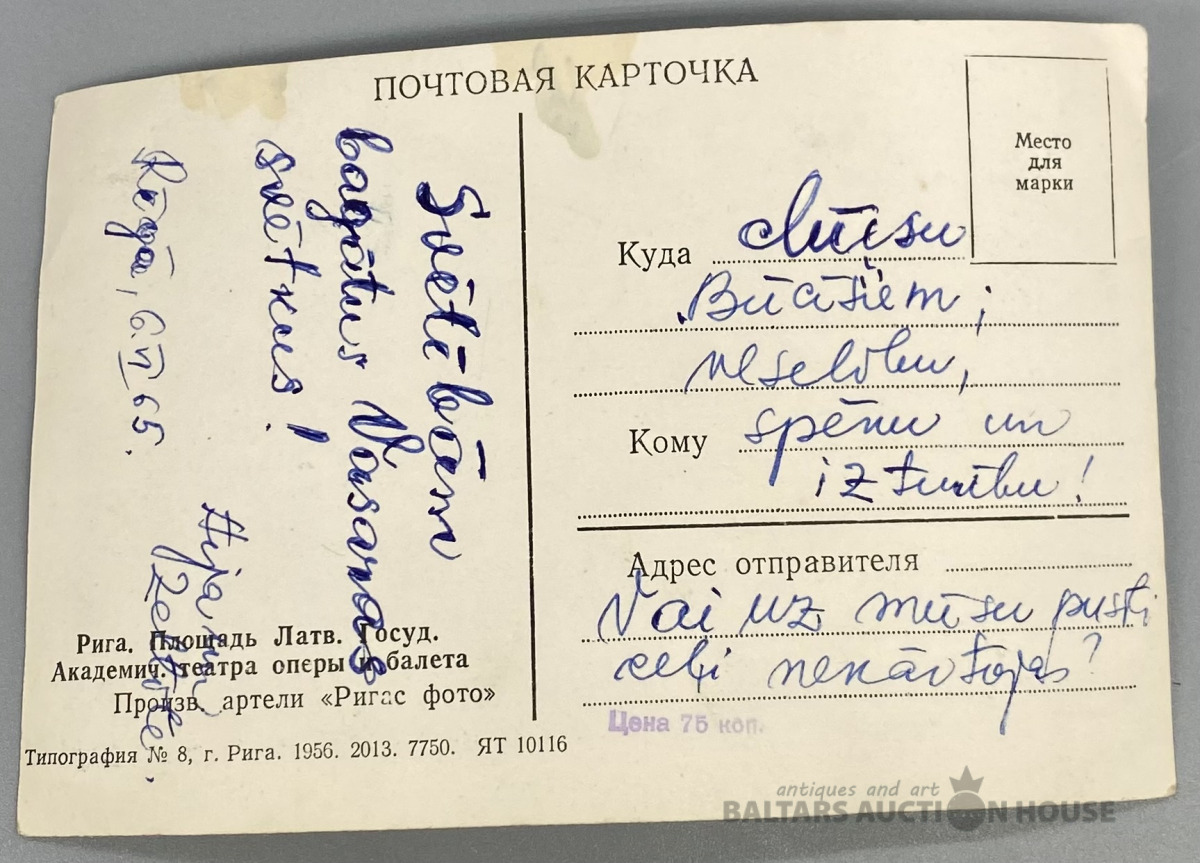 ПОЧТОВАЯ КАРТОЧКА
Место
для
марки
Svētī bām
bagātus Vasaras
svētkus!
Rīgā, 6 VI 65.
Aija un
Куда Mūsu
Būcīšiem;
veselību,
Кому spēku un
izturību!
Адрес отправителя
Vai uz mūsu pusi
ceļi nekārtojas?
Цена 75 коп.
Рига. Площадь Латв. Госуд.
Академич. театра оперы и балета
Произв. артели «Ригас фото»
Типография № 8, г. Рига. 1956. 2013. 7750. ЯТ 10116
antiques and art
BALTARS AUCTION HOUSE